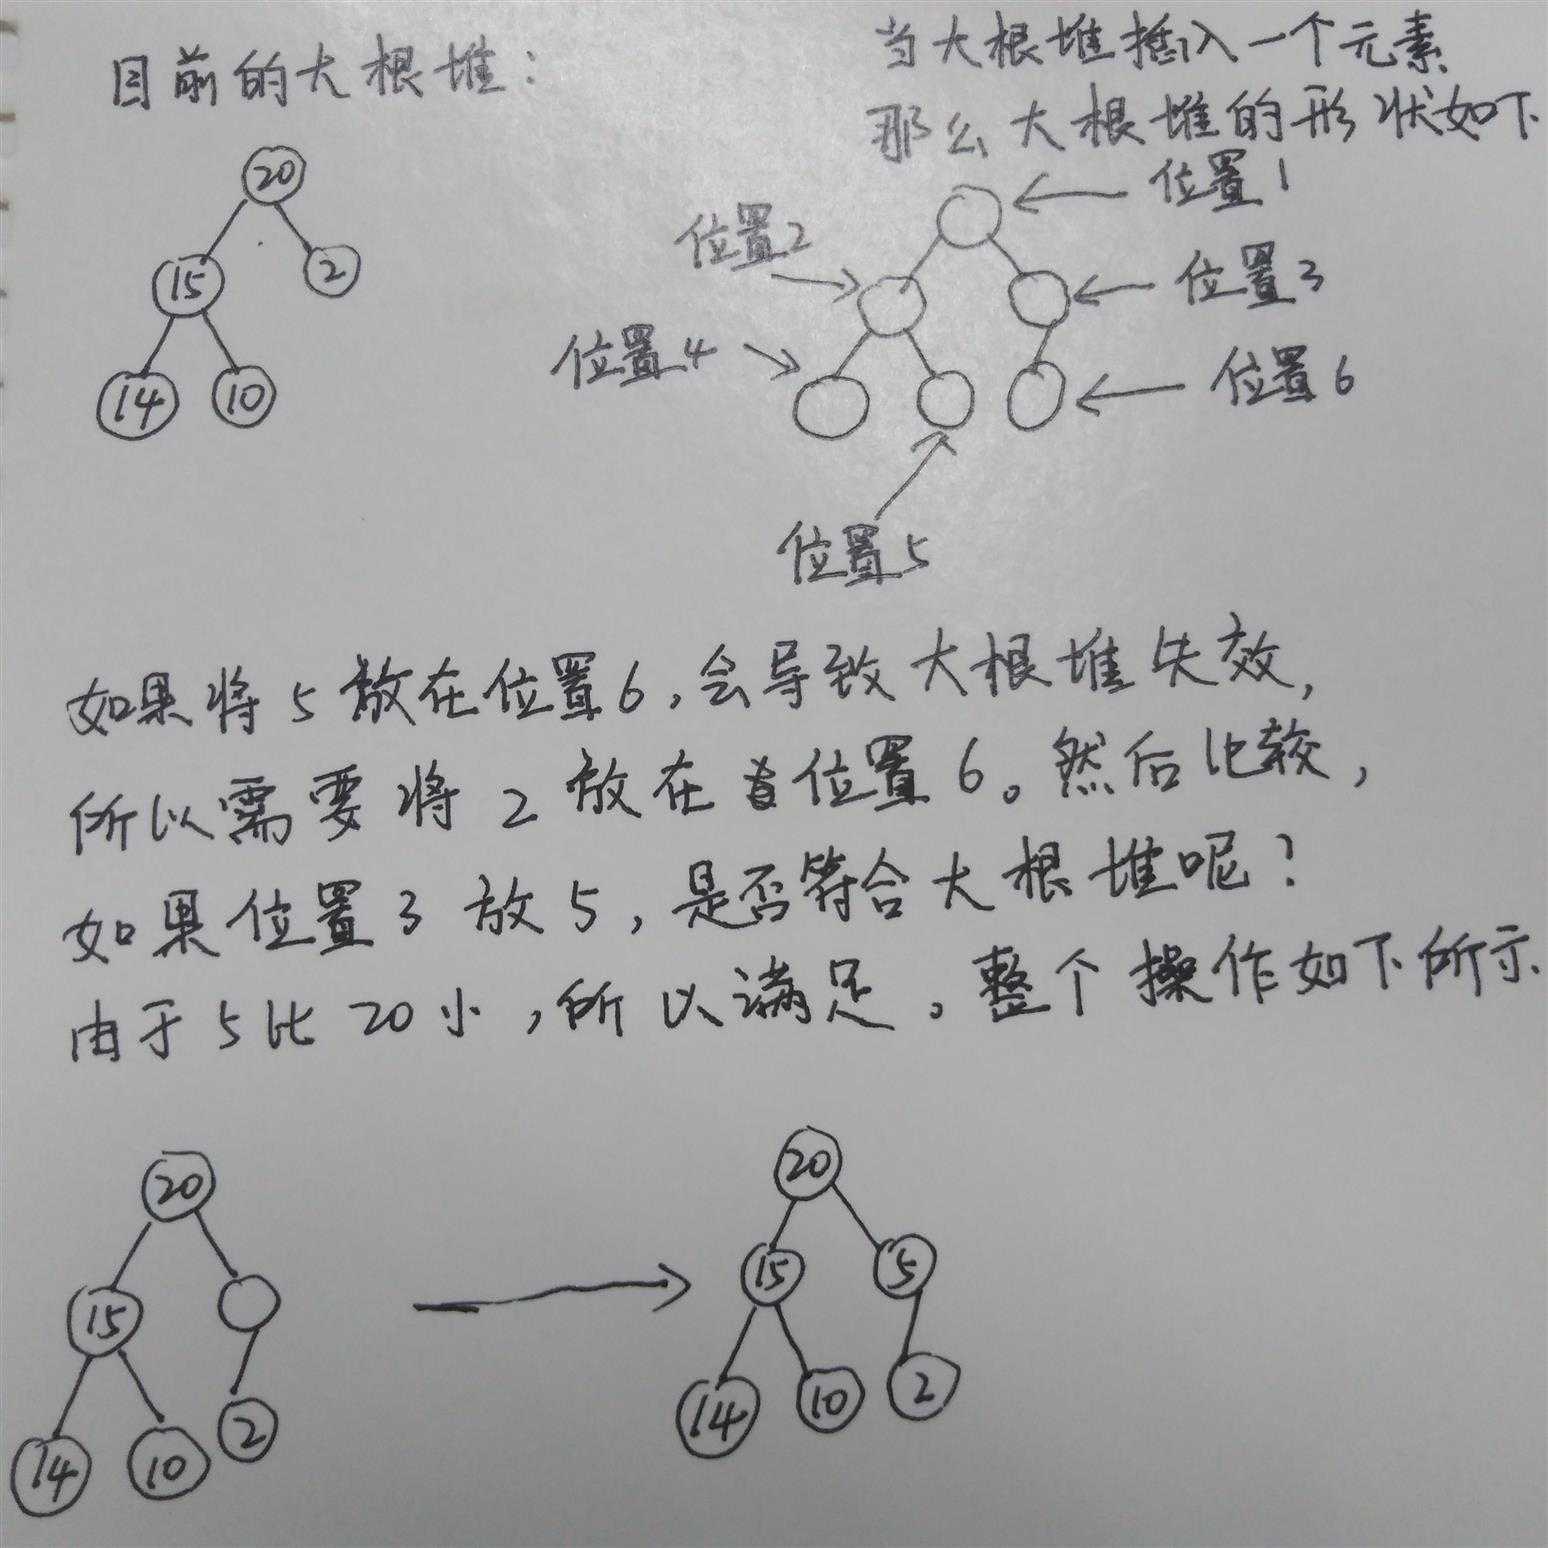 目前的大根堆：
20
15
2
14
10
当大根堆插入一个元素
那么大根堆的形状如下
位置1
位置2
位置3
位置4
位置6
位置5
如果将5放在位置6，会导致大根堆失效，
所以需要将2放在位置6。然后比较，
如果位置3放5，是否符合大根堆呢？
由于5比20小，所以满足。整个操作如下所示
20
15
14
10
2
20
15
5
14
10
2